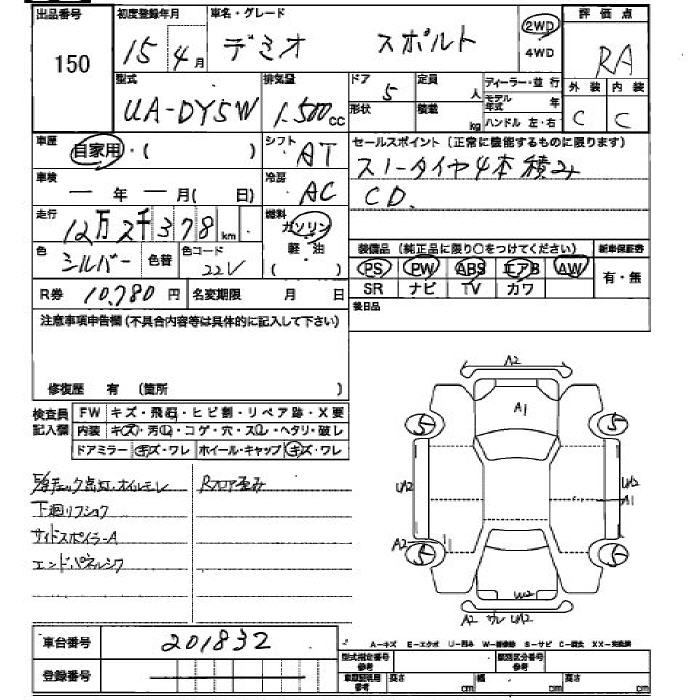 出品番号 初度登録年月 車名・グレード 評価点
150 15 4月 デミオ スポルト 2WD 4WD RA
型式 排気量 ドア 定員 ディーラー・並 行 外装 内装
UA-DY5W 1.500cc 5 人 モデル年式 年
形状 積載 kg ハンドル 左・右 C C
車歴 自家用・( ) シフト AT セールスポイント (正常に機能するものに限ります)
スノータイヤ4本積み
車検 ー 年 ー 月( 日) 冷房 AC CD.
走行 12万2千378km 燃料 ガソリン 軽・油 ( )
色 シルバー 色替 色コード 22V 装備品 (純正品に限り○をつけてください) 新車保証書
PS PW ABS エアB AW 有・無
R券 10,780円 名変期限 月 日 SR ナビ TV カワ
注意事項申告欄(不具合内容等は具体的に記入して下さい) 後日品
修復歴 有 (箇所 )
検査員記入欄 FW キズ・飛石・ヒビ割・リペア跡・X要
内装 キズ・汚れ・コゲ・穴・スレ・ヘタリ・破レ
ドアミラー キズ・ワレ ホイール・キャップ キズ・ワレ
チェック点灯・オイルモレ Rフロア歪み
下廻リフショク
サイドスポイラーA
エンドパネルシワ
A2
A1
5 5
UA2 UA2
A1
A2
5 5
UW2
A2 ワレ UA2
車台番号 201832
登録番号
A-キズ E-エクボ U-凹み W-補修跡 S-サビ C-腐食 XX-交換済
型式指定番号 参考 類別区分番号 参考
高さ cm 幅 cm 高さ cm